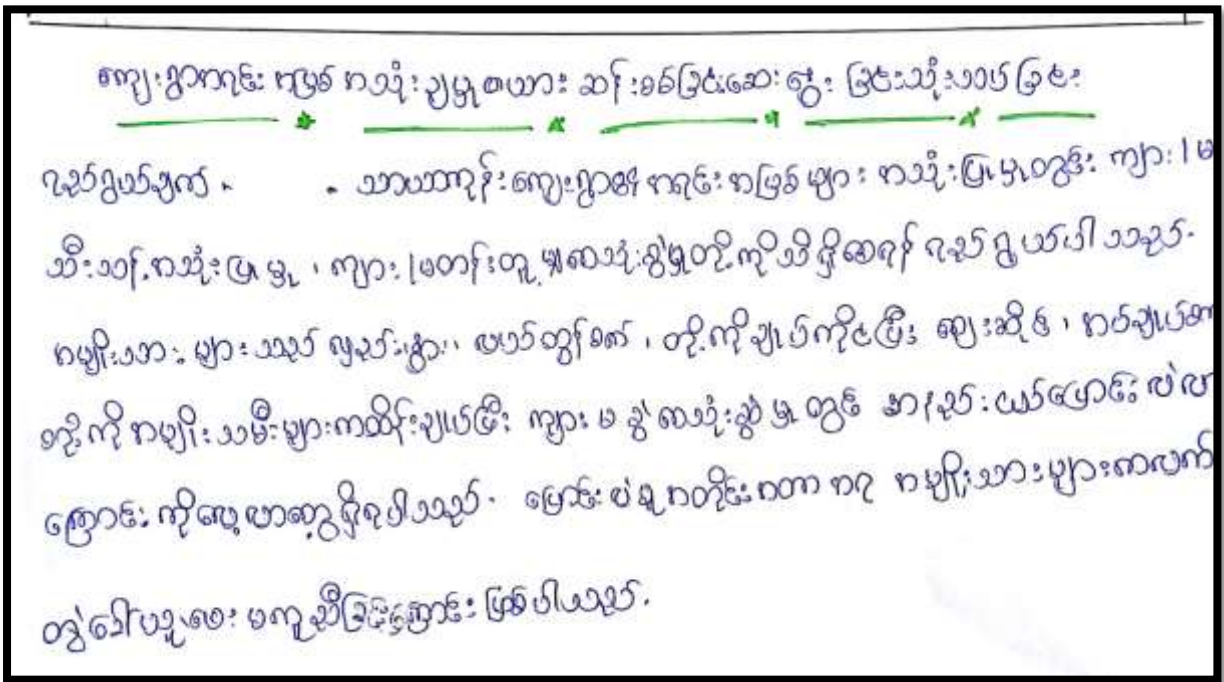 ကျေးရွာအရင်းအမြစ် အသုံးချမှုဇယား ဆန်းစစ်ခြင်းဆွေးနွေးခြင်းသုံးသပ်ခြင်း
ရည်ရွယ်ချက်. . သာယာကုန်းကျေးရွာ၏အရင်းအမြစ်များ အသုံးပြုမှုတွင် ကျား/မ
သီးသန့်အသုံးပြုမှု၊ ကျား/မတန်းတူ မျှဝေသုံးစွဲမှုတို့ကိုသိရှိစေရန် ရည်ရွယ်ပါသည်.
အမျိုးသားများသည် လှည်း၊နွား၊ လယ်ထွန်စက်၊ တို့ကိုချုပ်ကိုင်ပြီး ဈေးဆိုင်၊ အပ်ချုပ်စက်
တို့ကိုအမျိုးသမီးများကထိန်းချုပ်ပြီး ကျားမ ခွဲဝေသုံးစွဲမှုတွင် အနည်းငယ်ပြောင်းလဲလာ
ကြောင်းကိုလေ့လာတွေ့ရှိရပါသည်. ပြောင်းလဲမှုအတိုင်းအတာအရ အမျိုးသားများကလက်
တွဲခေါ်ယူပေး မကူညီခြင်းကြောင်းဖြစ်ပါသည်.